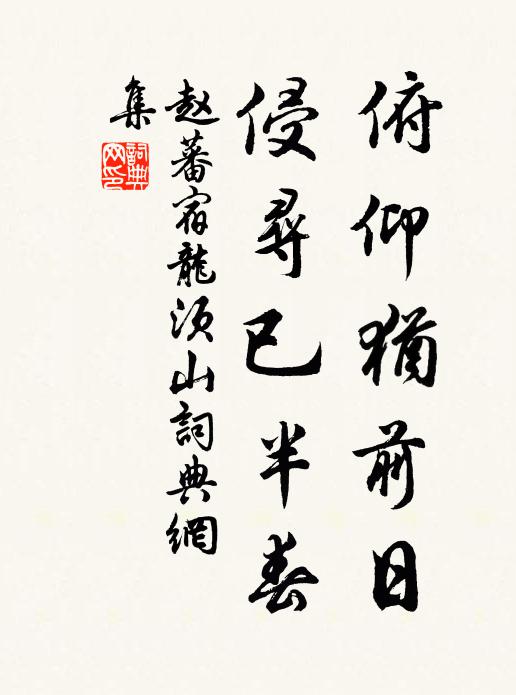 俯仰猶前日
侵尋已半春
趙蕃宿龍須山詞典網
集
詞典
网印